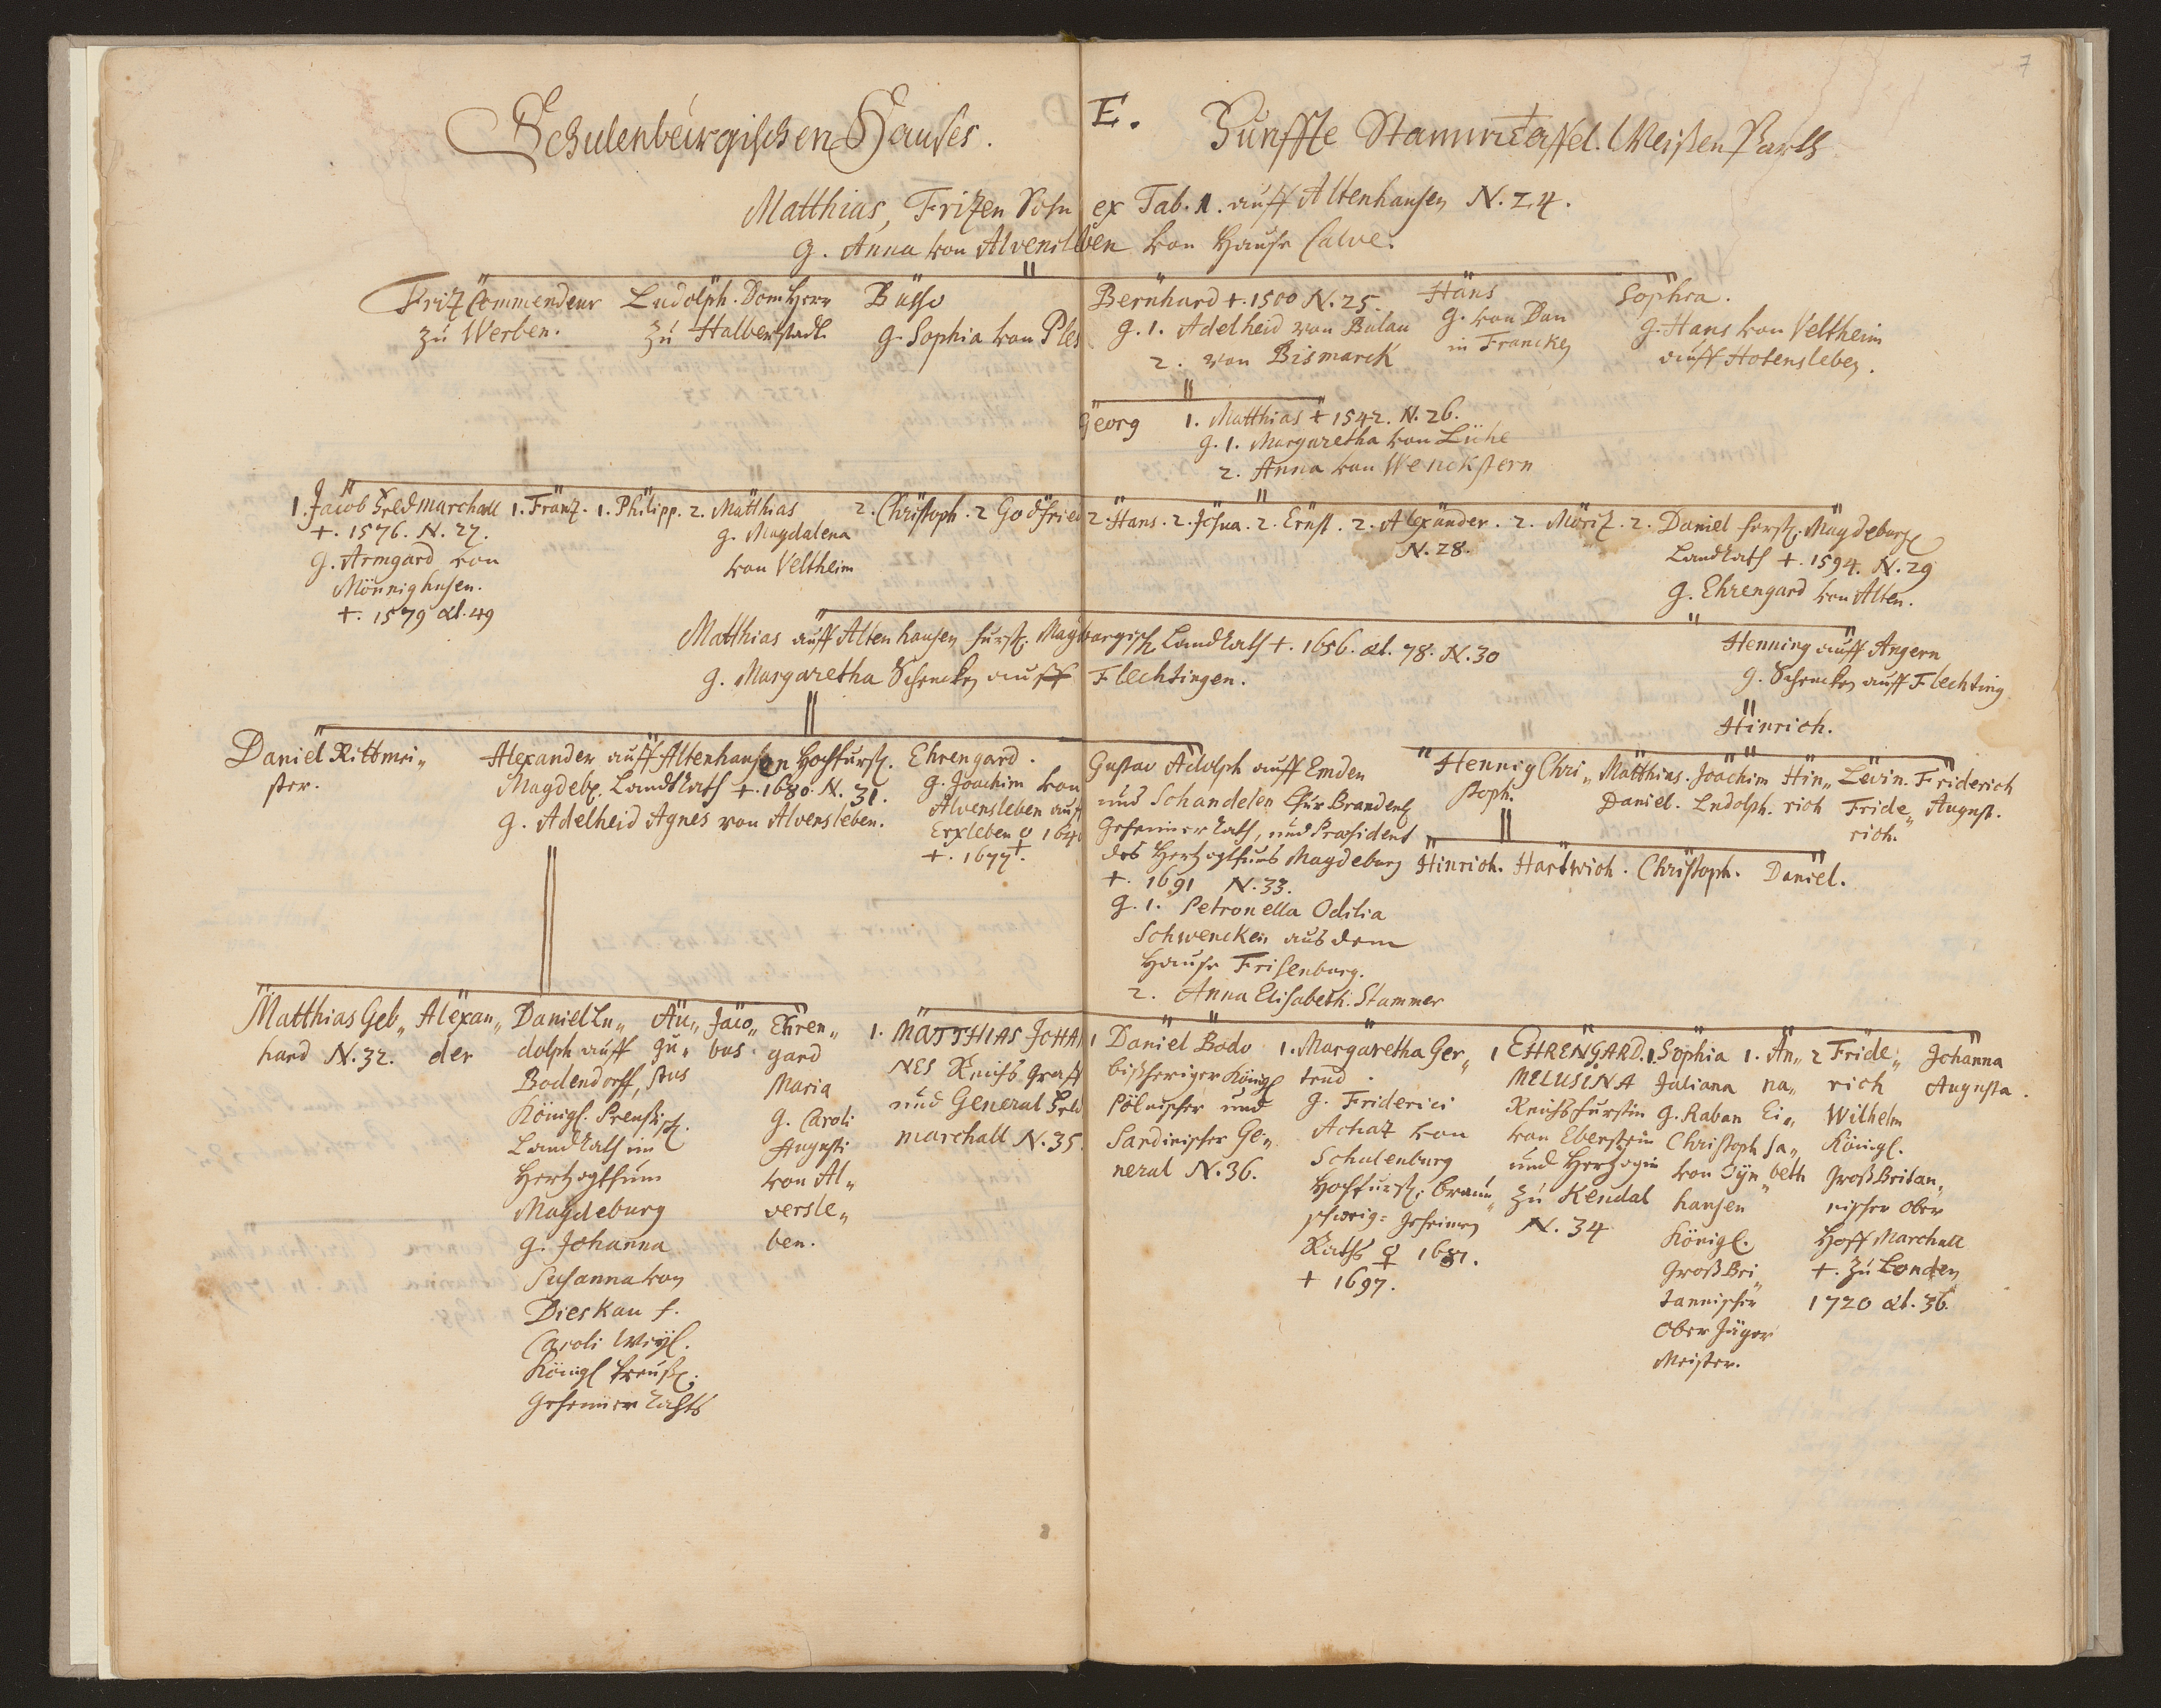 7
Schulenburgischen Hauses. E. Funffte Stammtaffel. Weißen Parts
Matthias, Fritzen Sohn ex Tab. 1. auff Altenhausen N. 24.
g. Anna von Alvensleben von Hause Calve.
Fritz Commendeur
zu Werben.
Ludolph. Dom Herr
zu Halberstadt
Busso
g. Sophia von Ples
Bernhard +. 1500 N. 25.
g. 1. Adelheid von Bulau
2. von Bismarck
Hans
g. von Dan
in Francken
Sophia.
g. Hans von Veltheim
auff Hotensleben.
Georg
1. Matthias + 1542. N. 26.
g. 1. Margaretha von Lühe
2. Anna von Wenckstern
1. Jacob Feldmarchall
+. 1576. N. 27.
g. Armgard von
Mönnighusen.
+. 1579 æt. 49
1. Frantz. 1. Philipp. 2. Matthias
g. Magdalena
von Veltheim
2. Christoph. 2 Godfried 2. Hans. 2. Josua. 2. Ernst. 2. Alexander. 2. Moritz. 2. Daniel furstl. Magdeburgl
N. 28.
Landrath +. 1594. N. 29
g. Ehrengard von Alten.
Matthias auff Altenhausen furstl. Magdburgisch Landrath +. 1656. æt. 78. N. 30
g. Margaretha Schencken auff Flechtingen.
Henning auff Angern
g. Schencken auff Flechting
Hinrich.
Daniel Rittmei„
ster.
Alexander auff Altenhausen Hochfurstl.
Magdeb. Landtrath +. 1680. N. 31.
g. Adelheid Agnes von Alvensleben.
Ehrengard.
g. Joachim von
Alvensleben auff
Erxleben 1640
+. 1677.
Gustav Adolph auff Emden
und Schandelen Chur Brandenl
Geheimer Rath, und Præsident
des Hertzogthums Magdeburg
+. 1691 N. 33.
g. 1. Petronella Odilia
Schwencken aus dem
Hause Frisenburg.
2. Anna Elisabeth. Stammer
Hennig Chri„
stoph.
Matthias.
Daniel.
Joachim
Ludolph.
Hin„
rich
Levin.
Fride„
rich.
Friderich
August.
Hinrich. Hartwich. Christoph. Daniel.
Matthias Geb„
hard N. 32.
Alexan„
der
Daniel Lu„
dolph auff
Bodendorff,
Königl. Preußisch.
Landrath im
Hertzogthum
Magdeburg
g. Johanna
Susanna von
Dieskau f.
Caroli Weyl.
Königl Preuß.
Geheimer Rahts
Au„
gu„
stus
Jaco„
bus
Ehren„
gard
Maria
g. Caroli
Augusti
von Al„
versle„
ben.
1. MATTHIAS JOHAN
NES Reichs Graff
und General Feld
marchall N. 35.
1 Daniel Bodo
bißheriger Königl
Pölnischer und
Sardinischer Ge„
neral N. 36.
1. Margaretha Ger„
trud.
g. Friderici
Achaz von
Schulenburg
Hochfurstl. Braun„
schweig: geheimen
Raths 1681.
+ 1697.
1 EHRENGARD.
MELUSINA
Reichsfurstin
von Eberstein
und Hertzogin
zu Kendal
N. 34
1. Sophia
Juliana
g. Raban
Christoph
von Oyn„
hausen
Königl.
Groß Bri„
tannischer
Ober Jäger
Meister.
1. An„
na„
Ei„
sa„
beth
2 Fride„
rich
Wilhelm
Königl.
Groß Britan„
nischer Ober
Hoff Marchall
+. zu Londen
1720 æt. 36.
Johanna
Augusta.